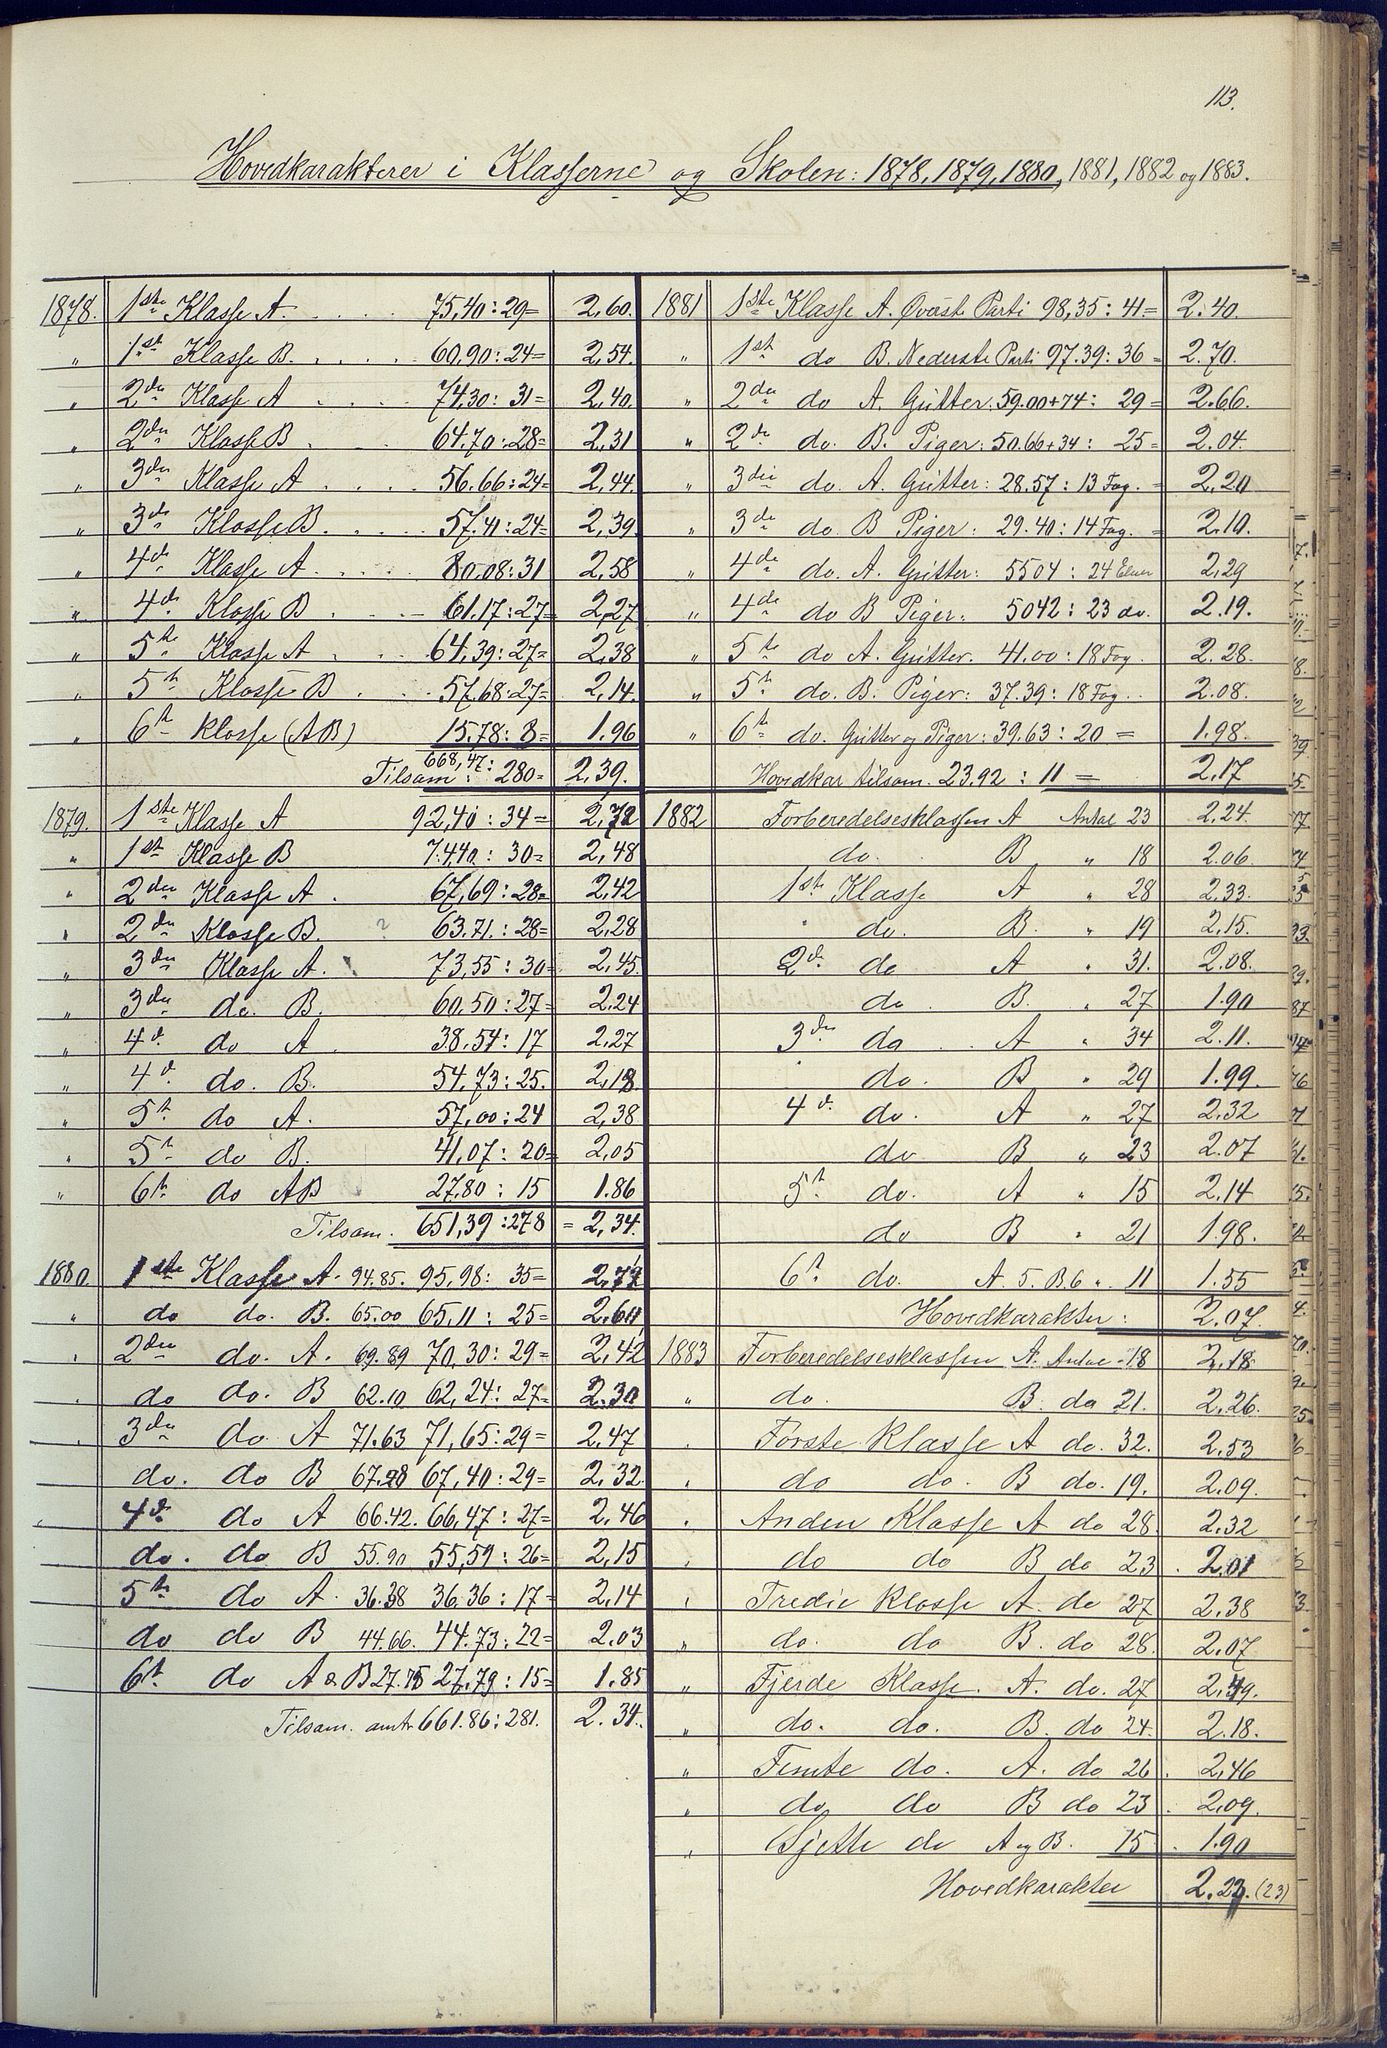 113.
Hovedkarakterer i Klasserne og Skolen: 1878, 1879, 1880, 1881, 1882 og 1883.
1878. 1ste Klasse A. 75,40 : 29 = 2,60.
" 1st Klasse B. 60,90 : 24 = 2,54.
" 2den Klasse A 74,30 : 31 = 2,40.
" 2den Klasse B 64,70 : 28 = 2,31
" 3den Klasse A 56.66 : 24 = 2,44.
" 3de Klasse B. 57.41 : 24 = 2,39.
" 4de Klasse A 80,08 : 31 2,58
" 4de Klasse B 61.17 : 27 = 2,27
" 5te Klasse A 64,39 : 27 = 2,38
" 5te Klasse B 57,68 : 27 = 2,14.
" 6te Klasse (AB) 15.78 : 8 = 1.96
Tilsam : 668,47 : 280 = 2,39.
1879. 1ste Klasse A 92,40 : 34 = 2,72
" 1st Klasse B 74.40 : 30 = 2,48
" 2den Klasse A. 67,69 : 28 = 2,42
" 2den Klasse B. ? 63.71. : 28 = 2,28
" 3den Klasse A. 73,55 : 30 = 2,45.
" 3den do. B. 60,50 : 27 = 2,24
" 4d. do A. 38,54 : 17 2,27
" 4d. do. B. 54,73 : 25. 2,18
" 5t. do A. 57,00 : 24 2,38
" 5t do B. 41,07 : 20 = 2,05
" 6t. do AB 27,80 : 15 1.86
Tilsam. 651,39 : 278 = 2,34.
1880. 1ste Klasse A. 94.85. 95,98 : 35 = 2,72
" do do. B. 65.00 65,11 : 25 = 2,60
" 2den do. A. 69.89 70.30 : 29 = 2,42
" do do. B 62.10 62,24 : 27 = 2.30
" 3den do A 71.63 71,65 : 29 = 2,47
do. do B 67.28 67,40 : 29 = 2,32.
" 4d. do A 66.42. 66,47 : 27 = 2,46
do. do B 55.90 55,59 : 26 = 2,15
5te do A. 36.38 36.36 : 17 = 2,14
do do B 44.66. 44.73 : 22 = 2.03
6t. do A & B 27.75 27,79 : 15 = 1.85
Tilsam. 661.86 : 281. 2.34.
1881 1ste Klasse A. Øverste Parti 98,35 : 41 = 2.40.
" 1st do B. Nederste Parti 97.39 : 36 = 2.70.
" 2den do A. Gutter : 59.00 + 74 : 29 = 2.66.
" 2de do. B. Piger : 50.66 + 34 : 25 = 2.04.
" 3die do. A. Gutter : 28.57 : 13 Fag. = 2,20
" 3de do. B Piger : 29.40 : 14 Fag. = 2.10.
" 4de do. A. Gutter : 5504 : 24 Elever 2,29
" 4de do B Piger. 5042 : 23 do. 2.19.
" 5te do A. Gutter. 41.00 : 18 Fag. 2.28.
" 5t. do. B. Piger : 37.39 : 18 Fag. 2.08.
" 6t do. Gutter og Piger : 39.63 : 20 = 1.98.
Hovedkar tilsam. 23.92 : 11 = 2,17
1882 Forberedelsesklassen A Antal 23 2,24.
do. B " 18 2.06.
1ste Klasse A " 28 2,33.
" do. B. " 19 2,15.
2d. do A " 31. 2.08.
do B. " 27 1.90
3den do A " 34 2.11.
do. B " 29 1.99.
4d. do. A " 27 2,32
do B " 23 2.07
5t do. A " 15 2,14
do B " 21 1.98.
6t. do. A. 5. B 6 ". 11 1.55
Hovedkarakter : 2.07.
1883 Forberedelsesklassen A. Antal 18 2,18.
" do. B. do 21. 2,26.
" Første Klasse A do. 32. 2,53
" do do. B do. 19. 2,09.
" Anden Klasse A do 28. 2,32
" do do B do 23 2.01
" Tredie Klasse A. do 27 2,38
" do. do B. do 28. 2,07
" Fjerde Klasse. A. do. 27 2,49.
" do. do. B. do 24. 2.18.
" Femte do. A. do 26. 2,46
" do do B do 23. 2,09.
" Sjette do A og B. 15. 1.90
Hovedkarakter 2.22. (23)